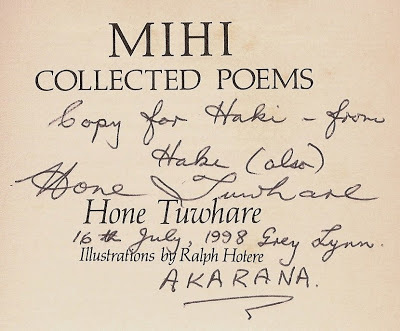 MIHI
COLLECTED POEMS
Copy for Haki – from
Hake (also)
Hone Tuwhare
Hone Tuwhare
16th July, 1998 Grey Lynn.
Illustrations by Ralph Hotere
AKARANA.